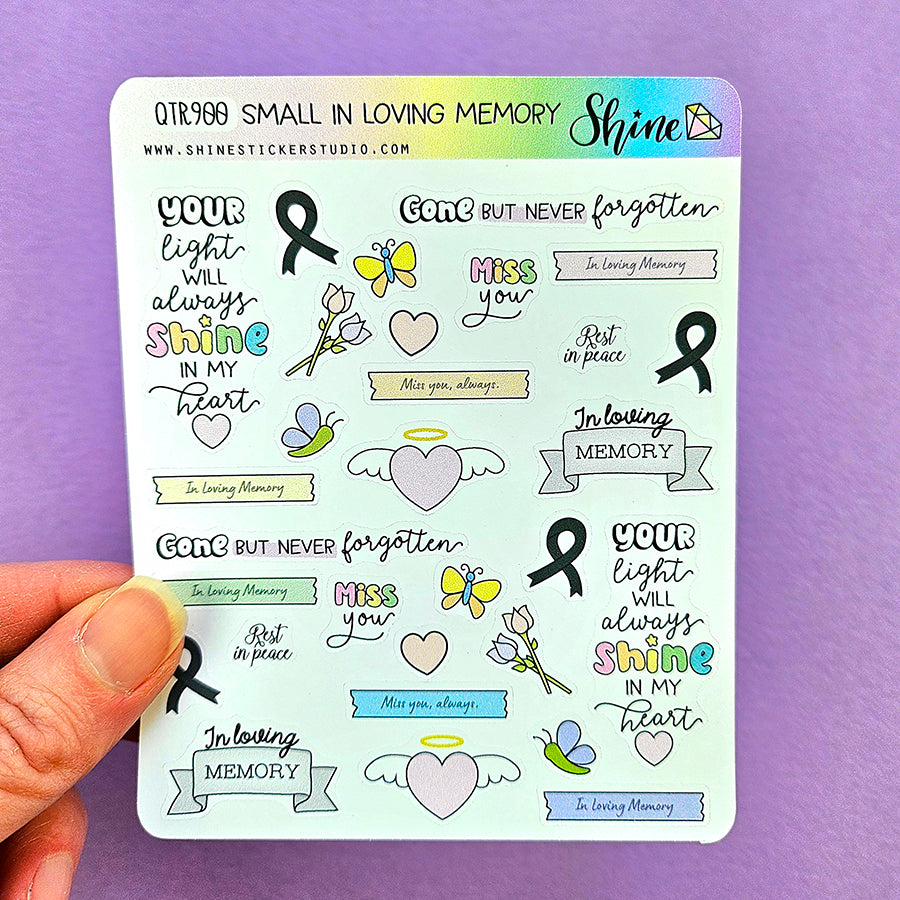 QTR900 SMALL IN LOVING MEMORY Shine
WWW.SHINESTICKERSTUDIO.COM
YOUR
light
WILL
always
shine
IN MY
heart
Gone BUT NEVER forgotten
Miss
you
In Loving Memory
Rest
in peace
Miss you, always.
In loving
MEMORY
In Loving Memory
Gone BUT NEVER forgotten
In Loving Memory
Miss
you
Rest
in peace
YOUR
light
WILL
always
shine
IN MY
heart
Miss you, always.
In loving
MEMORY
In Loving Memory